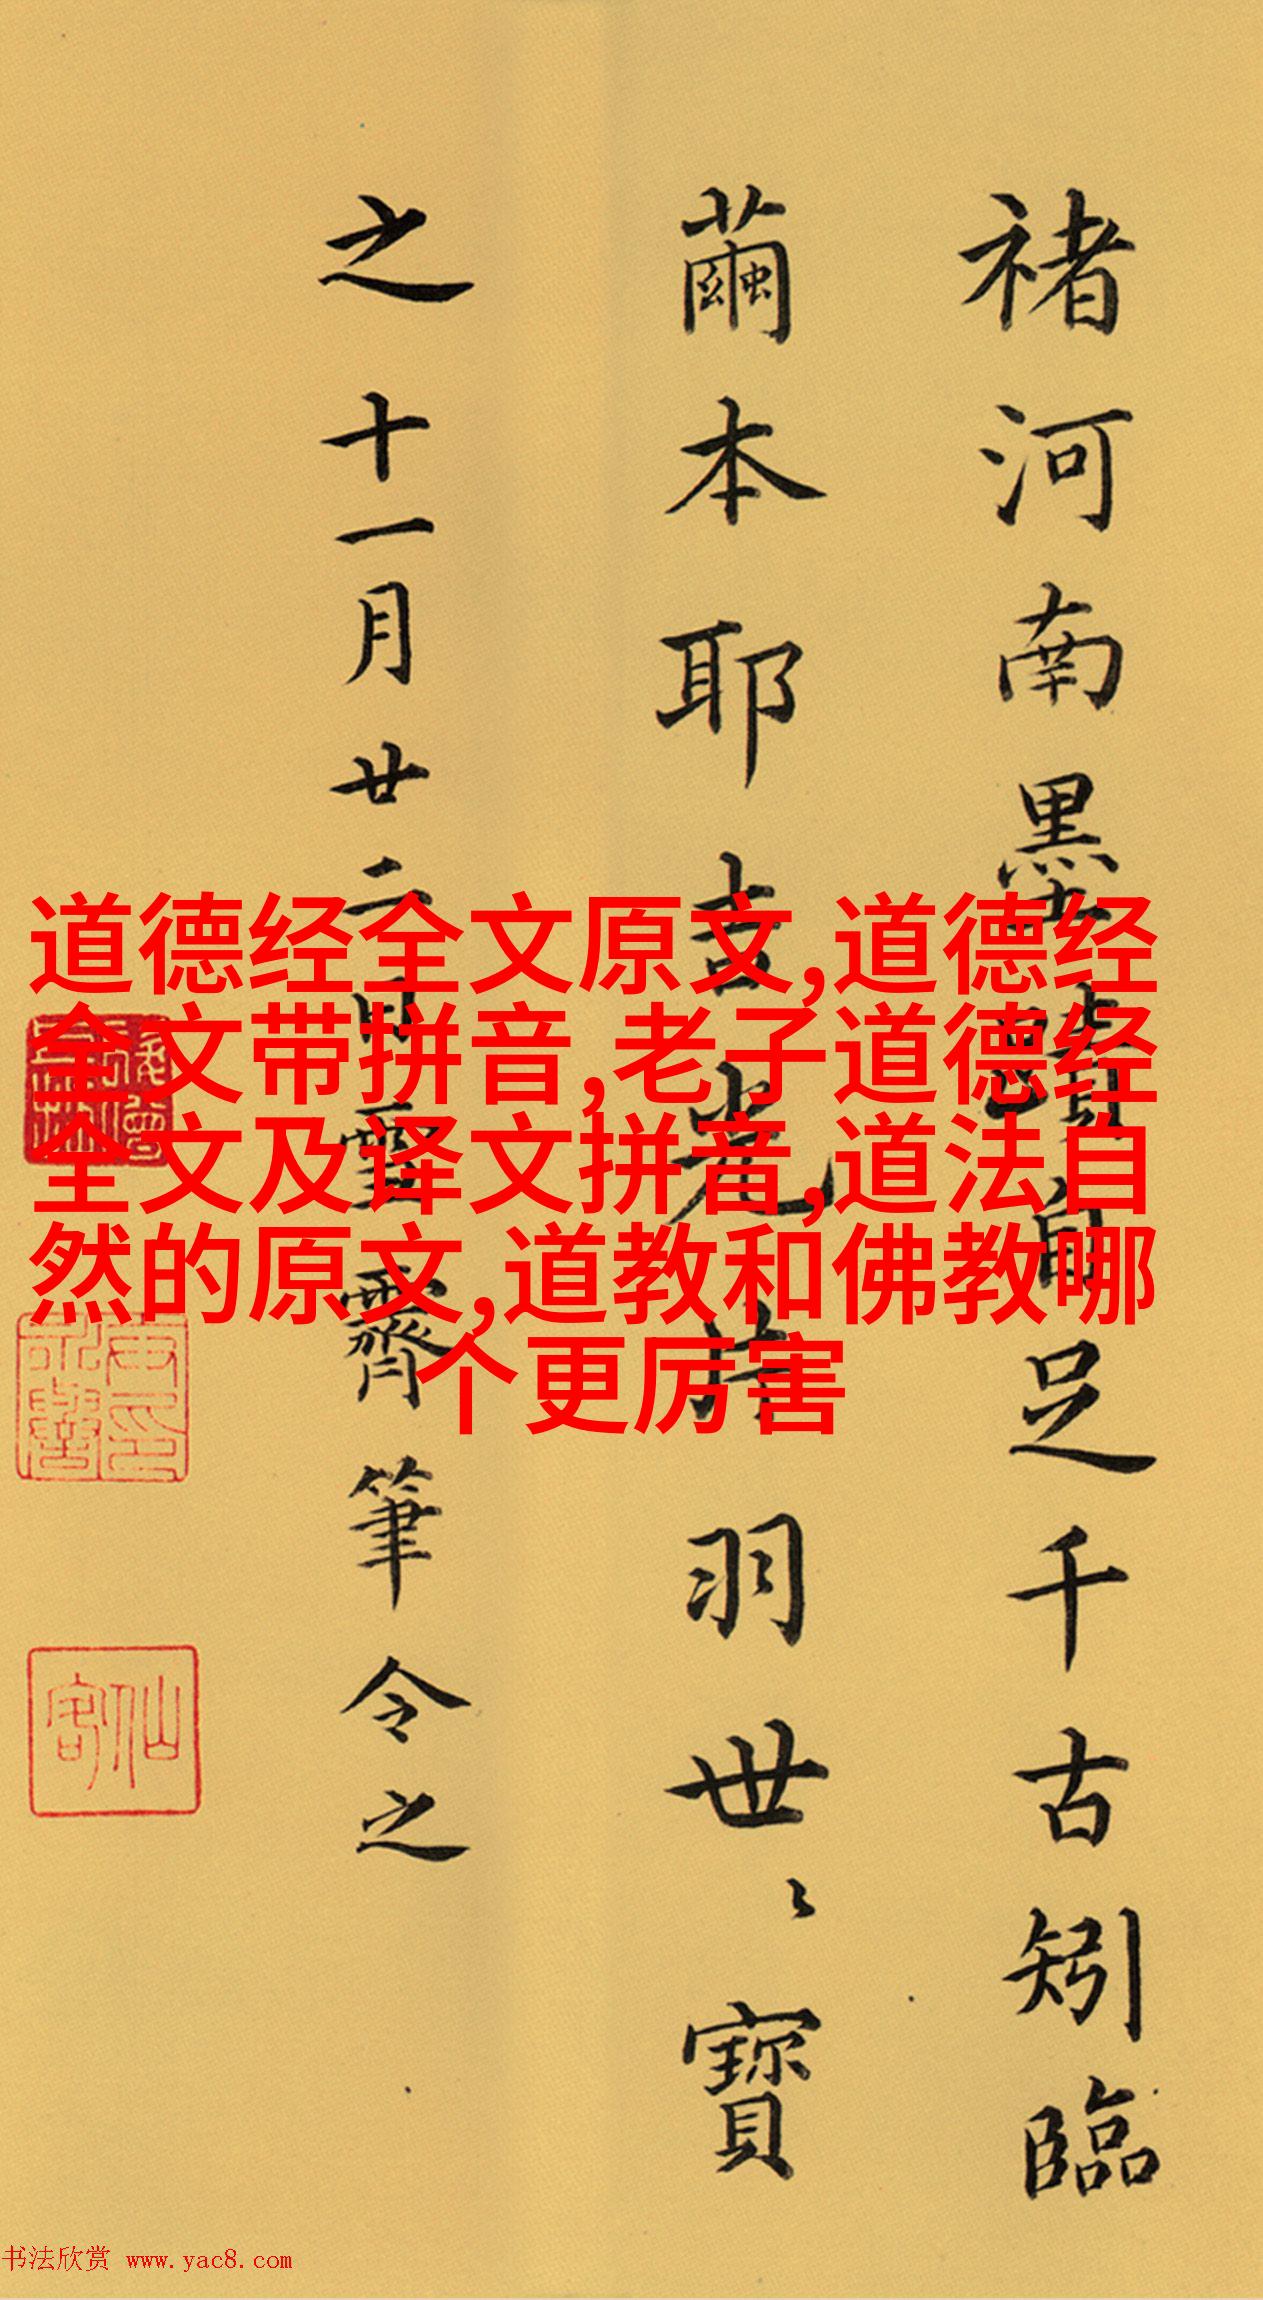 褚河南墨蹟自足千古矧臨
繭本耶吉光片羽世〻寶
之十一月廿二日雪齋筆令之
道德经全文原文,道德经
全文带拼音,老子道德经
全文及译文拼音,道法自
然的原文,道教和佛教哪
个更厉害
仙客
书法欣赏 www.yac8.com